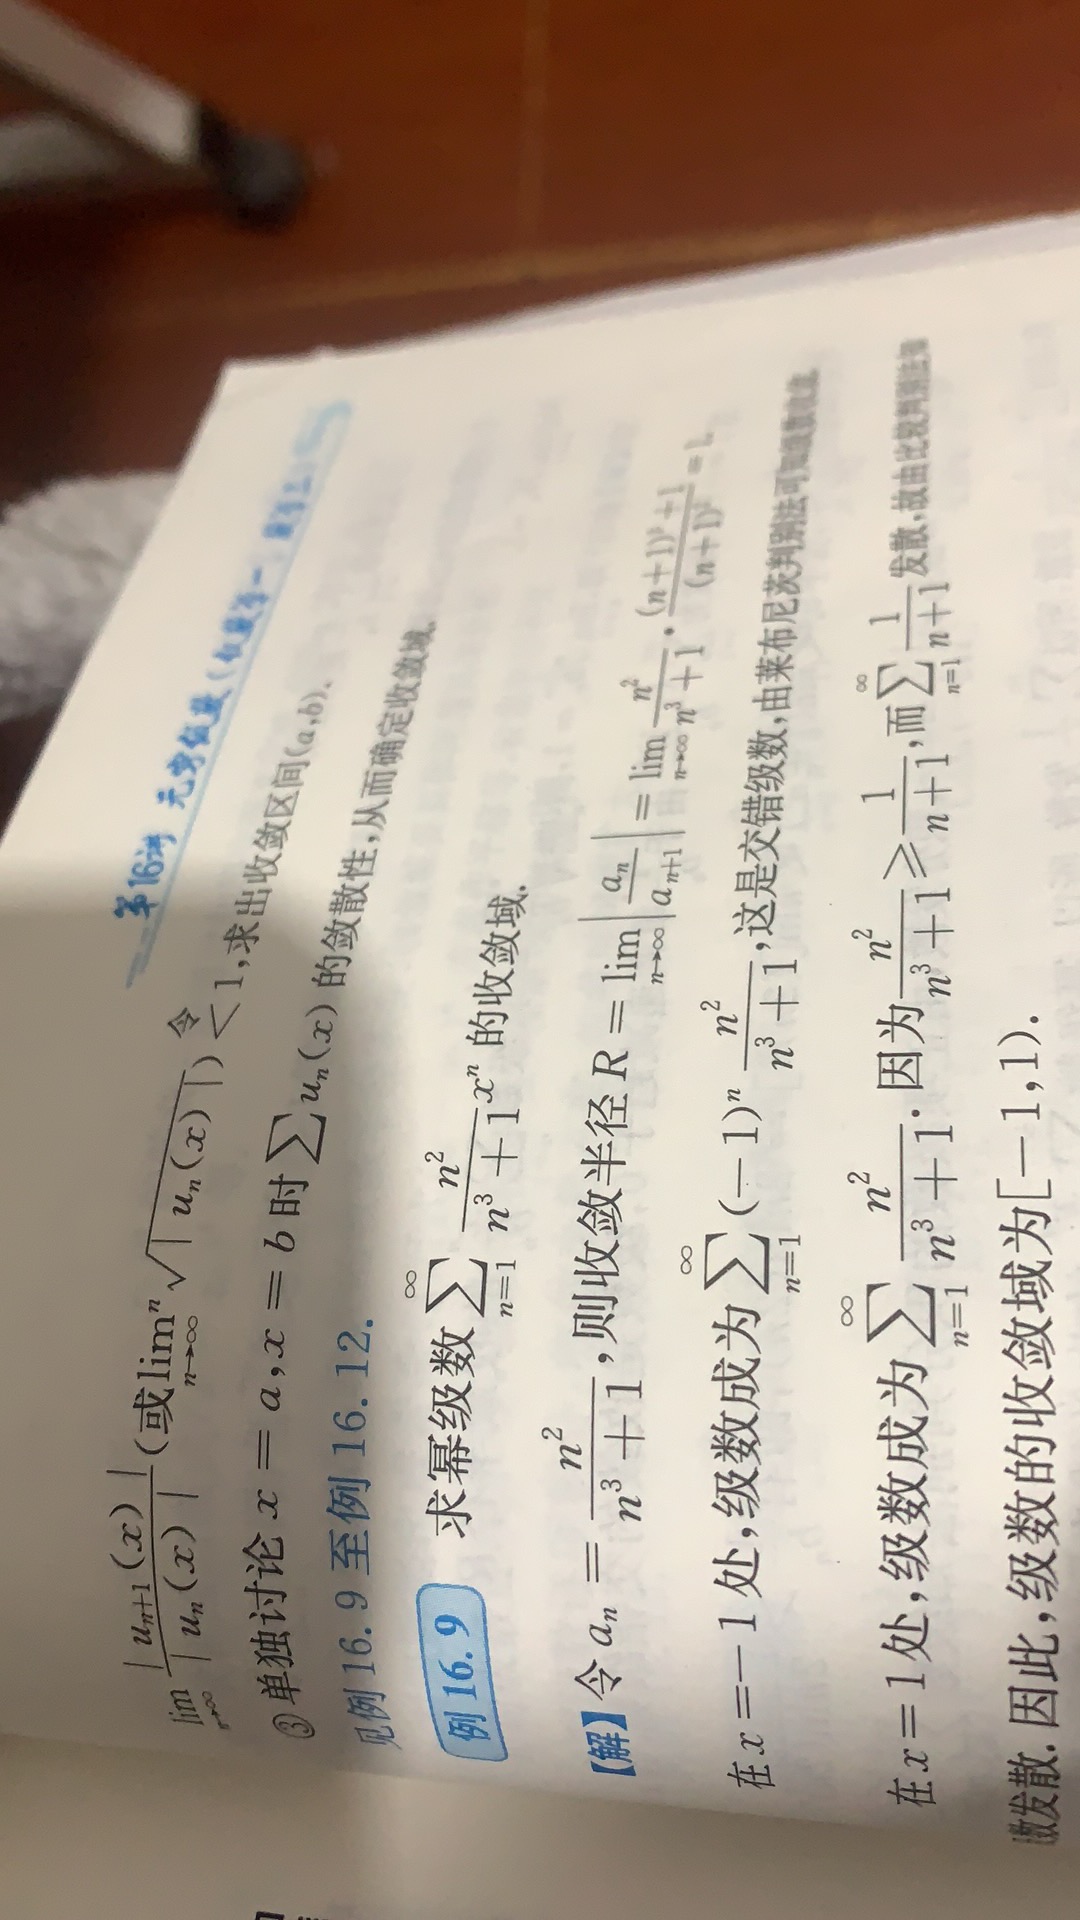 第16讲 无穷级数(仅数学一、数学三)
lim n→∞ |u_{n+1}(x)|/|u_n(x)| (或 lim n→∞ ⁿ√|u_n(x)|) 令< 1,求出收敛区间(a,b).
③ 单独讨论 x = a,x = b 时 ∑u_n(x) 的敛散性,从而确定收敛域.
见例 16.9 至例 16.12.
例 16.9 求幂级数 ∑_{n=1}^{∞} n²/(n³+1) xⁿ 的收敛域.
【解】令 a_n = n²/(n³+1),则收敛半径 R = lim_{n→∞} |a_n/a_{n+1}| = lim_{n→∞} n²/(n³+1) · ((n+1)³+1)/(n+1)² = 1.
在 x =−1 处,级数成为 ∑_{n=1}^{∞} (−1)ⁿ n²/(n³+1),这是交错级数,由莱布尼茨判别法可知级数收敛.
在 x = 1 处,级数成为 ∑_{n=1}^{∞} n²/(n³+1). 因为 n²/(n³+1) ⩾ 1/(n+1),而 ∑_{n=1}^{∞} 1/(n+1) 发散,故由比较判别法知
数发散. 因此,级数的收敛域为[−1,1).